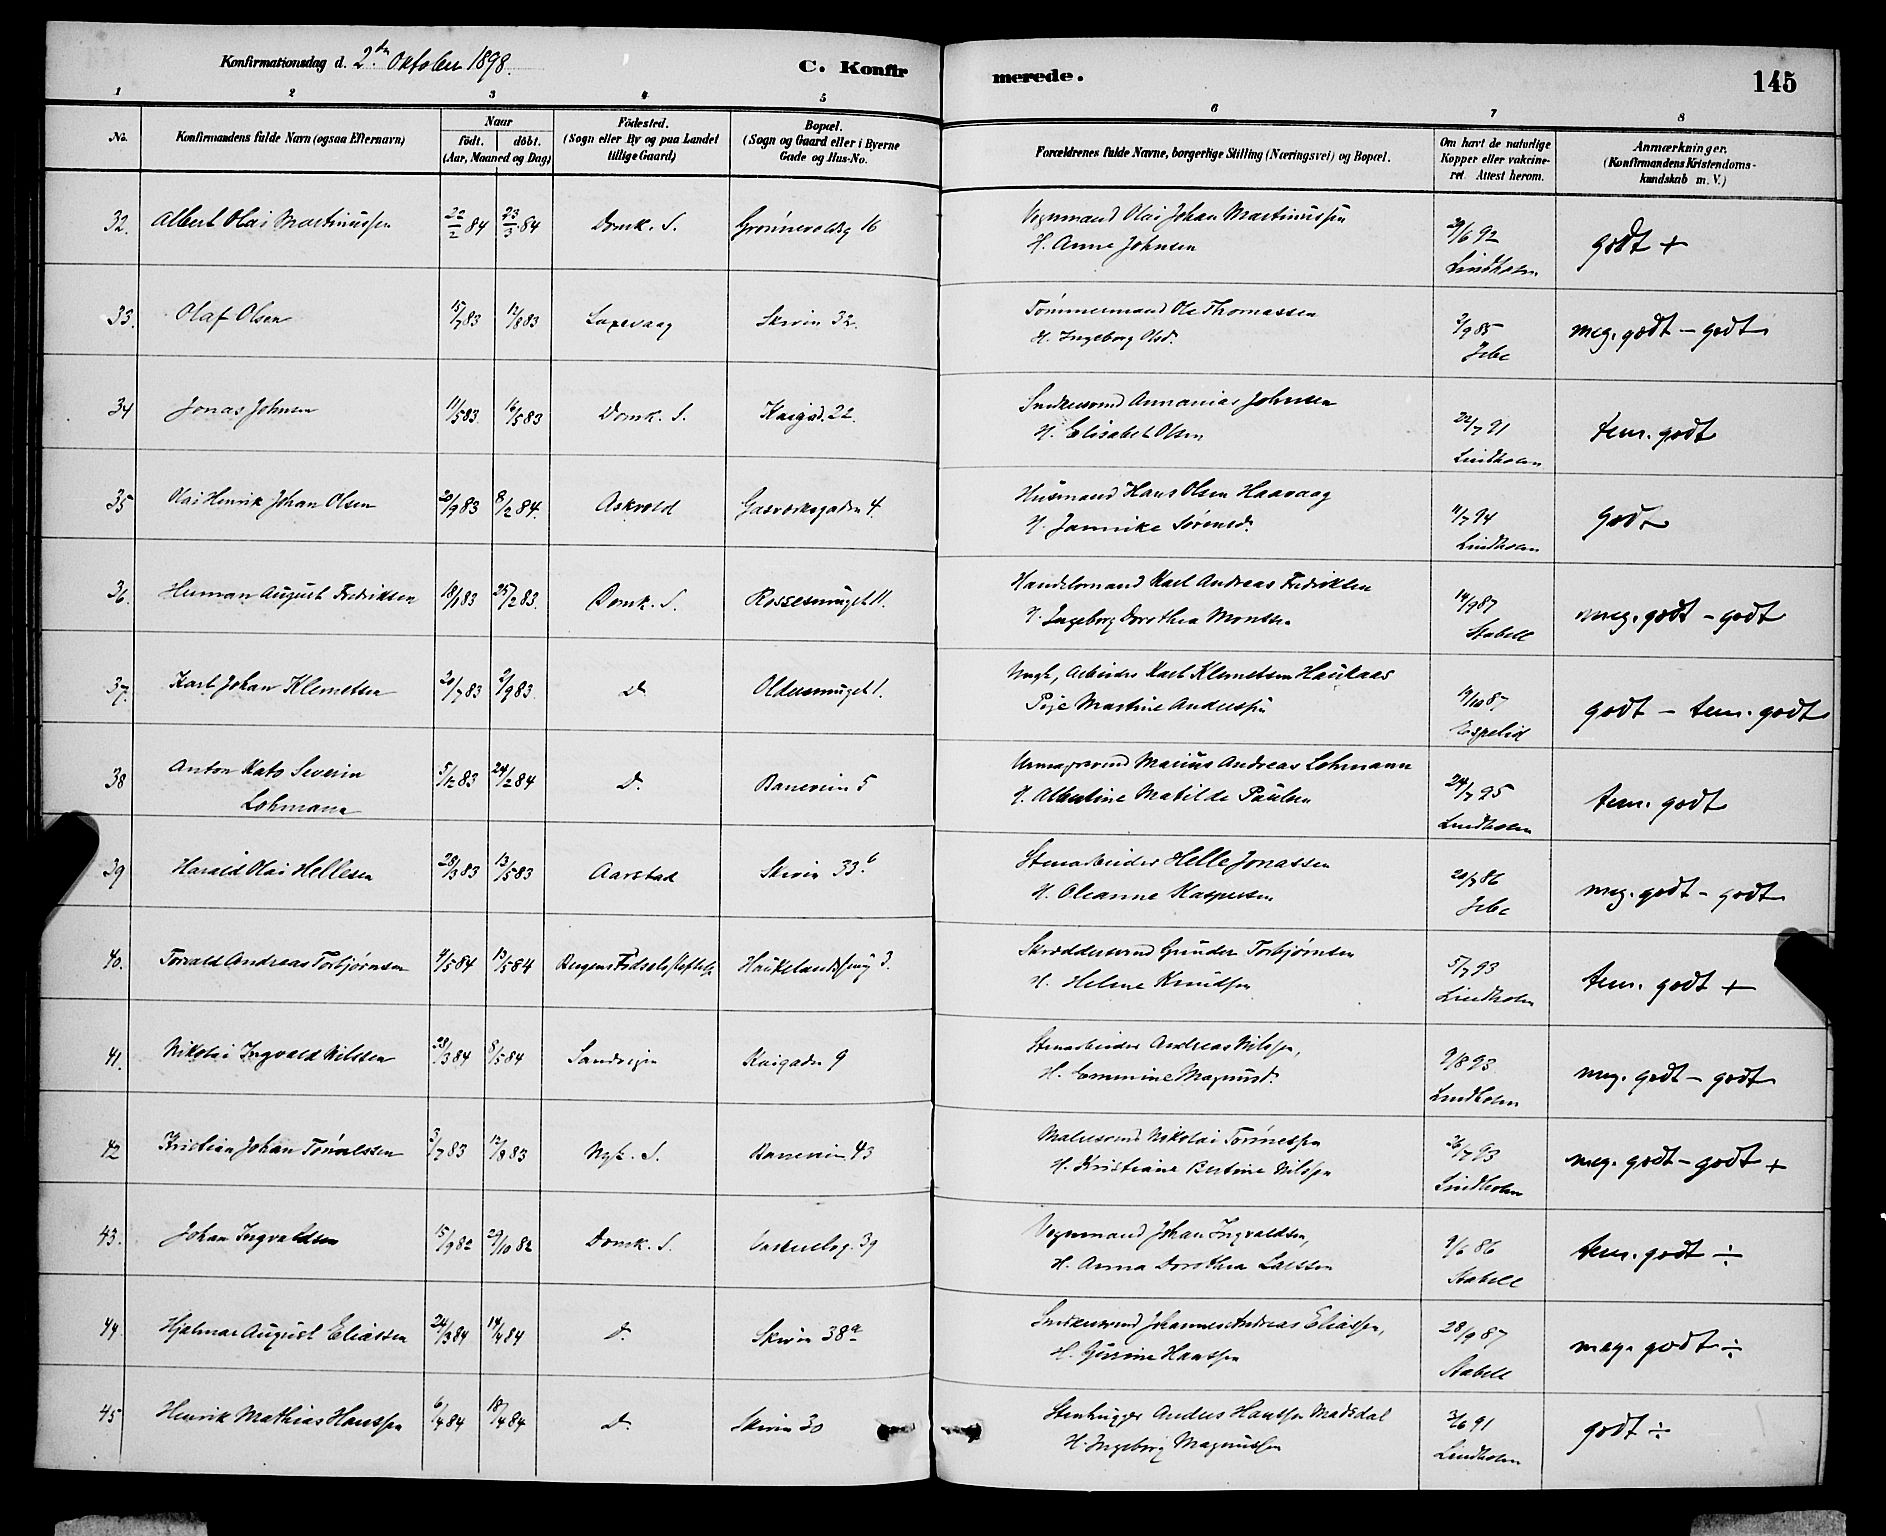 Konfirmationsdag d. 2den Oktober 1898.
C. Konfir
merede.
145
1 2 3 4 5 6 7 8
No.
Konfirmandens fulde Navn (ogsaa Efternavn)
Naar
födt. döbt.
(Aar, Maaned og Dag)
Födested.
(Sogn eller By og paa Landet
tillige Gaard)
Bopæl.
(Sogn og Gaard eller i Byerne
Gade og Hus-No.
Forældrenes fulde Navne, borgerlige Stilling (Næringsvei) og Bopæl.
Om havt de naturlige
Kopper eller vakcine-
ret. Attest herom.
Anmærkninger.
(Konfirmandens Kristendoms-
kundskab m. V.)
32. Albert Olai Martinussen 22/2 84 23/3 84 Domk. S. 16 Vognmand Olai Johan Martinussen
H. Anne Johnsen /6 92 Lindholm godt +
33. Olaf Olsen 15/7 83 12/8 83 Laxevaag Skivin 32. Tømmermand Ole Thomassen
H. Ingeborg Olsd. 2/9 85 Jebe meg. godt - godt
34 Jonas Johnsen 11/5 83 16/5 83 Domk. S. Kaigd. 22. Snekkersvend Annanias Johnsen
H. Elisabet Olsen 22/7 91 Lindholm tem. godt
35 Olai Henrik Johan Olsen 20/9 83 8/2 84. Askvold Gasverksgaden 4. Husmand Hans Olsen Haavaag
H. Jannike Sørensd. 11/7 94 Lindholm godt
36. Herman August Fredriksen 18/1 83 25/2 83. Domk. S. Rossesmuget 11. Handelsmand Karl Andreas Fredriksen
H. Ingeborg Dorothea Monsen 14/9 87 Stabell meg. godt - godt
37. Karl Johan Klemetsen 20/7 83 2/9 83. D. Oldersmuget 1. Ungk. Arbeider Karl Klemetsen Haukaas
Pige Martine Anderssen 19/10 87 Espelid godt - tem. godt
38 Anton Kato Severin
Lohmann 5/12 83 24/2 84 D. Baneveien 5 Marius Andreas Lohmann
H. Albertine Matilde Paulsen 24/7 95 Lindholm tem. godt
39 Harald Olai Hellesen 28/3 83 13/5 83 Aarstad Skivin 33.b Stenarbeider Helle Jonassen
H. Oleanne Kaspersen 20/7 86 Jebe meg. godt - godt
40. Torvald Andreas Torbjørnsen 4/5 84 13/5 84 Bergens Fødselsstiftelse 3. Skræddersvend Gunder Torbjørnsen
H. Helene Knudsen 5/7 93 Lindholm tem. godt +
41. Nikolai Ingvald Nilssen 23/3 84 8/5 84 Sandvigen Kaigaden 9 Stenarbeider Andreas Nilssen,
H. Emmine Magnusd. 9/8 93 Lindholm meg. godt - godt
42 Kristian Johan Tønnessen 3/7 83 12/8 83 Nyk. S. Baneveien 43 Malersvend Nikolai Tønnessen
H. Kristiane Bertine Nilssen 26/7 93 Lindholm meg. godt - godt +
43. Johan Ingvaldsen 15/9 82 29/10 82 Domk. S. 39 Vognmand Johan Ingvaldsen,
H. Anna Dorothea Larssen 9/6 86 Stabell tem. godt ÷
44. Hjalmar August Eliassen 24/3 84 14/4 84 D. Skivin 38a Snekkersvend Johannes Andreas Eliassen,
H. Gurine Hanssen 28/9 87 Stabell meg. godt ÷
45 Henrik Mathias Hanssen 6/4 84 18/4 84 D. Skivin 30 Stenhugger Anders Hanssen Madsdal
H. Ingeborg Magnussen /6 91 Lindholm godt ÷